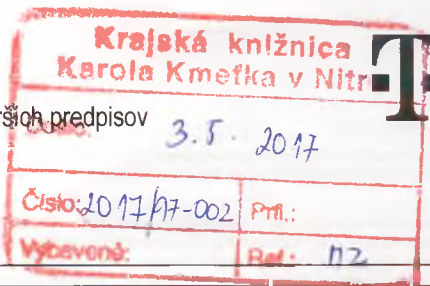 Krajská knižnica
Karola Kmeťka v Nitr
T
ších predpisov
3.5. 2017
Číslo: 2017/97-002 Príl.:
Vybavené: Ref.: n2